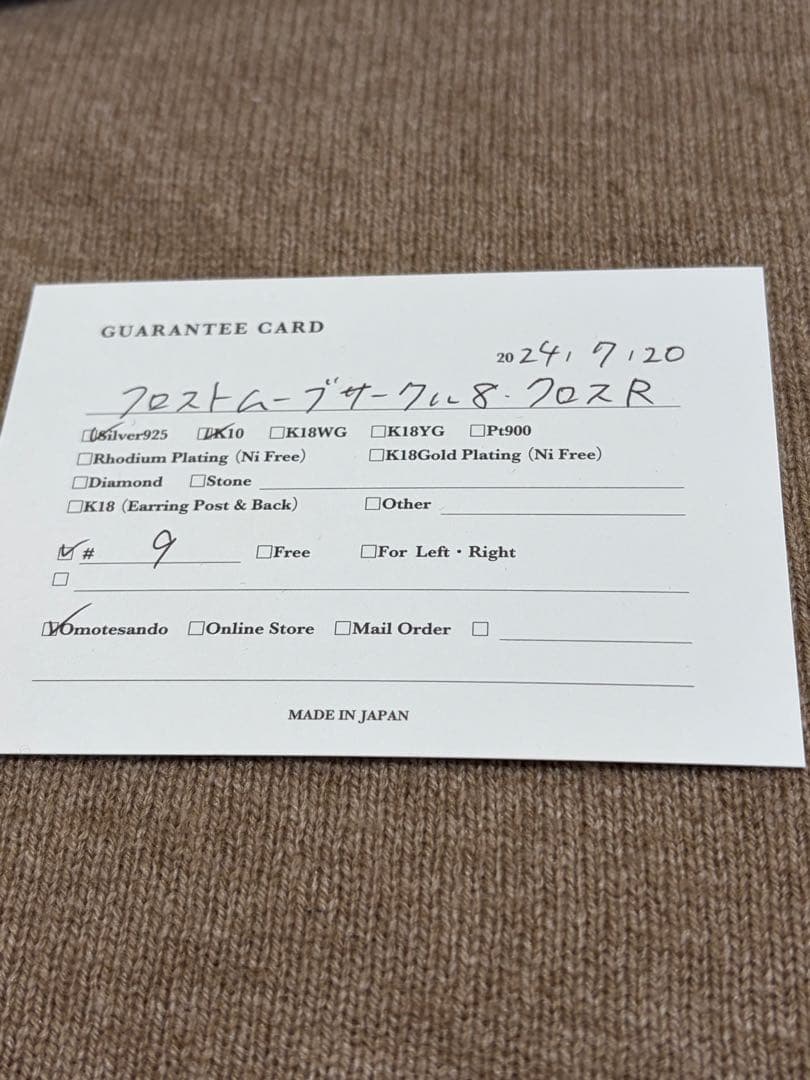 GUARANTEE CARD
2024, 7, 20
フロストムーブサークル8・クロスR
☑Silver925 ☑K10 □K18WG □K18YG □Pt900
□Rhodium Plating (Ni Free) □K18Gold Plating (Ni Free)
□Diamond □Stone
□K18 (Earring Post & Back) □Other
☑# 9 □Free □For Left・Right
□
☑Omotesando □Online Store □Mail Order □
MADE IN JAPAN